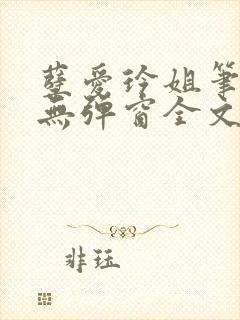 孽愛玲姐筆
無彈窗全文
非珏